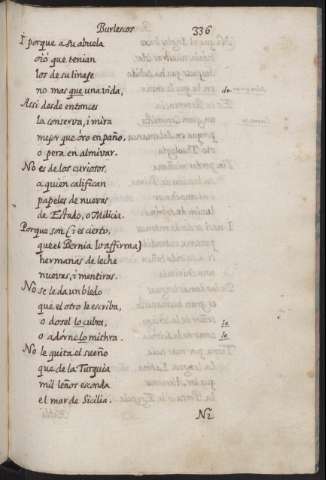 Burlescos 336
I porque a su abuela
oiò que tenian
los de su linage
no mas que una vida,
Assi desde entonces
la conserva, i mira
mejor que oro en paño,
o pera en almivar.
No es de los curiosos,
a quien califican
papeles de nuevas
de Estado, o Milicia.
Porque son (i es cierto,
que el Bernia lo affirma)
hermanas de leche
nuevas, i mentiras.
No se le da un bledo
que el otro le escriba,
o dosel lo cubra,
o adórnelo mithra.
No le quita el sueño
que de la Turquia
mil leños esconda
el mar de Sicilia.
Ni